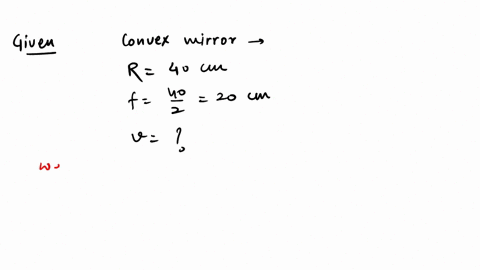 Given Convex mirror →
R = 40 cm
f = 40/2 = 20 cm
v = ?
w.